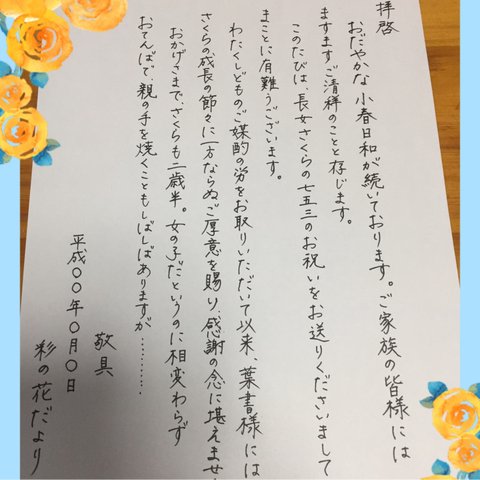 拝啓
おだやかな小春日和が続いております。ご家族の皆様には
ますますご清祥のことと存じます。
このたびは、長女さくらの七五三のお祝いをお送りくださいまして
まことに有難うございます。
わたくしどものご媒酌の労をお取りいただいて以来、葉書様には
さくらの成長の節々に一方ならぬご厚意を賜り、感謝の念に堪えませ
おかげさまで、さくらも二歳半。女の子だというのに相変わらず
おてんばで、親の手を焼くこともしばしばありますが…………
敬具
平成〇〇年〇月〇日
彩の花だより